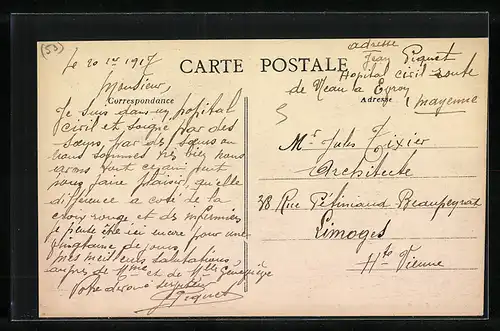 (53)
Le 20 1er 1917
CARTE POSTALE
Correspondance
Monsieur,
Je suis dans un hopital
civil et soigné par des
Sœurs par des Sœurs ou
nous sommes très bien nous
avons tout ce qui peut
nous faire plaisir, qu'elle
différence a coté de la
croix rouge et des infirmiers
je peut être ici encore pour une
vingtaine de jours,
mes meilleurs salutations,
aupres de Mme et de Mlle Geneviève
Votre dévoué serviteur
J Piquet
adresse
Jean Piquet
Hopital civil route
de Neau a Evron
Adresse
Mayenne
Mr Jules Tixier
Architecte
38 Rue Pétiniaud Beaupeyrat
Limoges
Hte Vienne